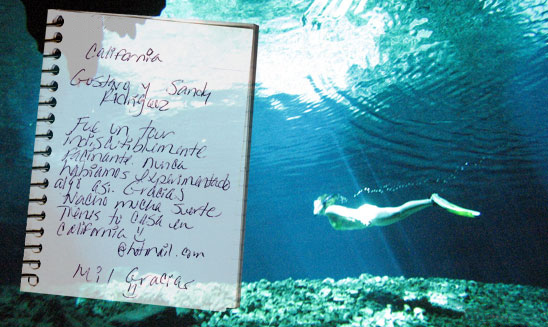 California
Gustavo y Sandy
Rodriguez
Fue un tour
indiscutiblemente
facinante. nunca
habiamos experimentado
algo asi. Gracias
Nacho mucha suerte
Tienes tu casa en
California
@hotmail.com
Mil Gracias